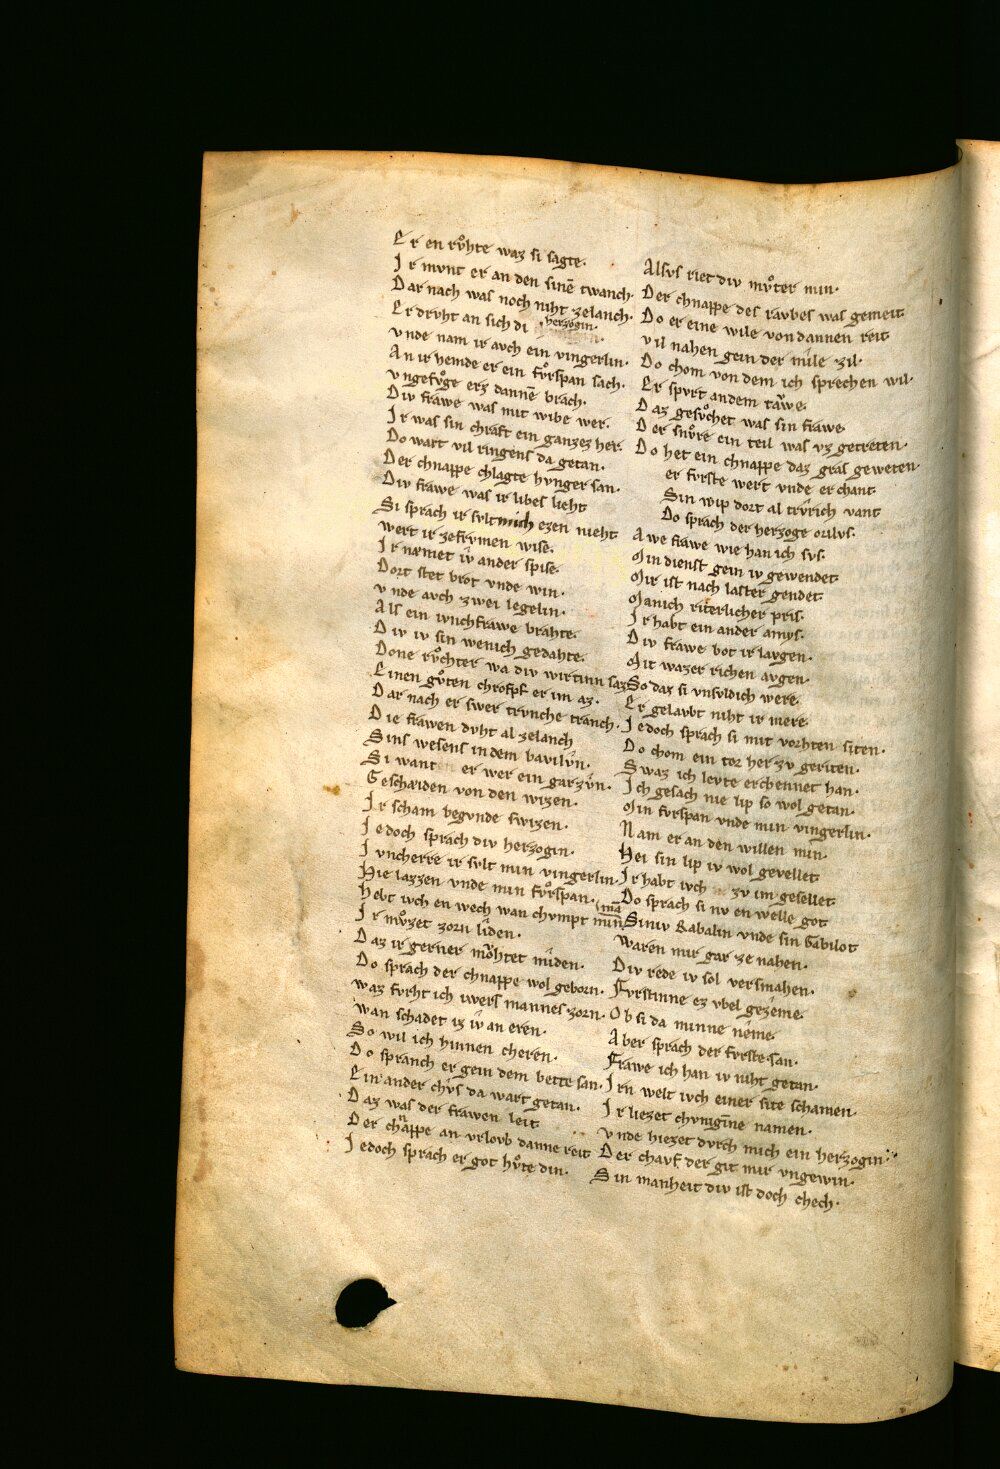 Er en rvͦhte waz si sagte·
Ir mvnt er an den sinē twanch·
Dar nach was noch niht zelanch·
Er drvht an sich di herzogin·
vnde nam ir avch ein vingerlin·
An ir hemde er ein fvͦrspan sach·
vngefvͦge erz dannē brach·
Div frawe was mit wibe wer·
Ir was sin chraft ein ganzez her·
Do wart vil ringens da getan·
Der chnappe chlagte hvnger san·
Div frawe was ir libes lieht
Si sprach ir svlt mich ezen nieht
wert ir zefrvmen wise·
Ir næmet iv ander spise·
Dort stet brot vnde win·
vnde avch zwei legelin·
Als ein ivnchfrawe brahte·
Div iv sin wenich gedahte·
Done rvͦchter wa div wirtinn saz
Einen gvͦten chrofpf er im az·
Dar nach er swer trvnche tranch·
Die frawen dvht al zelanch
Sins wesens in dem bavilvn·
Si want er wer ein garzvn·
Geschæiden von den wizen·
Ir scham begvnde swizen·
Iedoch sprach div herzogin·
Ivncherre ir svlt min vingerlin·
Hie lazzen vnde min fvͦrspan·
Hebt ivch en wech wan chvmpt min man
Ir mvͦzet zorn liden·
Daz ir gerner moͤhtet miden·
Do sprach der chnappe wol geborn·
waz fvrht ich iwers mannes zorn·
wan schadet iz iv an eren·
So wil ich hinnen cheren·
Do spranch er gein dem bette san·
Ein ander chvs da wart getan·
Daz was der frawen leit
Der chnappe an vrlovb danne reit
Iedoch sprach er got hvͦte din·
Alsvs riet div mvͦter min·
Der chnappe des ravbes was gemeit
Do er eine wile von dannen reit
vil nahen gein der mile zil·
Do chom von dem ich sprechen wil·
Er spvrt an dem tawe·
Daz gesvͦchet was sin frawe
Der snvͦre ein teil was vz getreten·
Do het ein chnappe daz gras geweten·
er fvrste wert vnde er chant
Sin wip dort al trvrich vant
Do sprach der herzoge orilvs·
Awe frawe wie han ich svs·
Min dienst gein iv gewendet
Mir ist nach laster gendet
Manich riterlicher pris·
Ir habt ein ander amys·
Div frawe bot ir lavgen·
Mit wazer richen avgen·
So daz si vnsvldich were·
Er gelavbt niht ir mere·
Iedoch sprach si mit vorhten siten·
Do chom ein tor her zv geriten·
Swaz ich levte erchennet han·
Ich gesach nie lip so wol getan·
Min fvrspan vnde min vingerlin·
Nam er an den willen min·
Hei sin lip iv wol gevellet
Ir habt ivch zv im gesellet
Do sprach si nv en welle got
Siniv Rabalin vnde sin Gabilot
Waren mir gar ze nahen·
Div rede iv sol versmahen·
Fvrstinne ez vbel gezeme·
Ob si da minne neme·
Aber sprach der fvrste san·
Frawe ich han iv niht getan·
Irn welt ivch einer site schamen·
Ir liezet chvnigīne namen·
vnde hiezet dvrch mich ein herzogin·
Der chavf der git mir vngewin·
Sin manheit div ist doch chech·